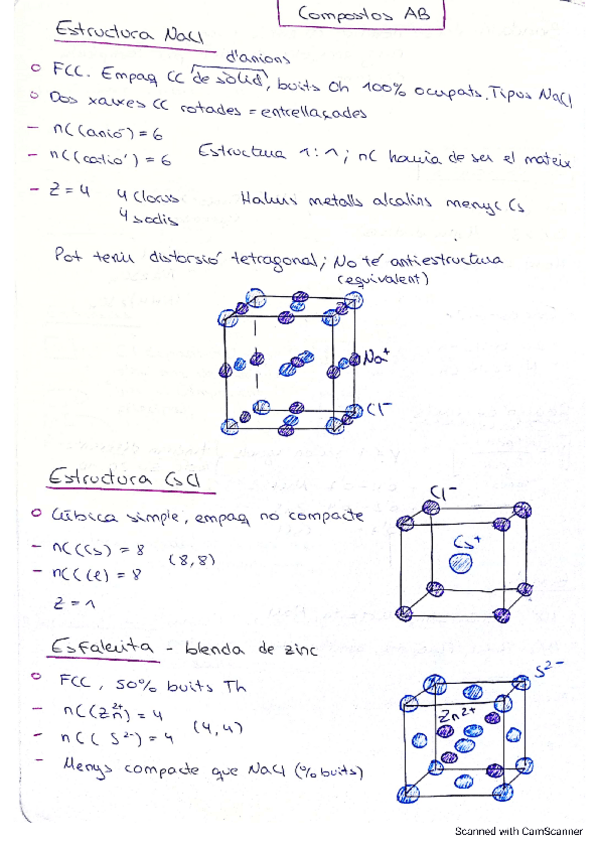 Compostos AB
Estructura NaCl
d'anions
○ FCC. Empaq CC de sòlid, buits Oh 100% ocupats. Tipus NaCl
○ Dos xarxes CC rotades = entrellaçades
- nC(anió) = 6
- nC(catió) = 6 Estructura 1:1; nC hauria de ser el mateix
- Z = 4 4 Clorurs Halurs metalls alcalins menys Cs
4 sodis
Pot tenir distorsió tetragonal; No té antiestructura
(equivalent)
Na+
Cl-
Estructura CsCl
○ Cúbica simple, empaq no compacte
- nC(Cs) = 8 (8,8)
- nC(Cl) = 8
Z = 1
Cl-
Cs+
Esfalerita - blenda de zinc
○ FCC, 50% buits Th
- nC(Zn2+) = 4 (4,4)
- nC(S2-) = 4
- Menys compacte que NaCl (% buits)
S2-
Zn2+
Scanned with CamScanner